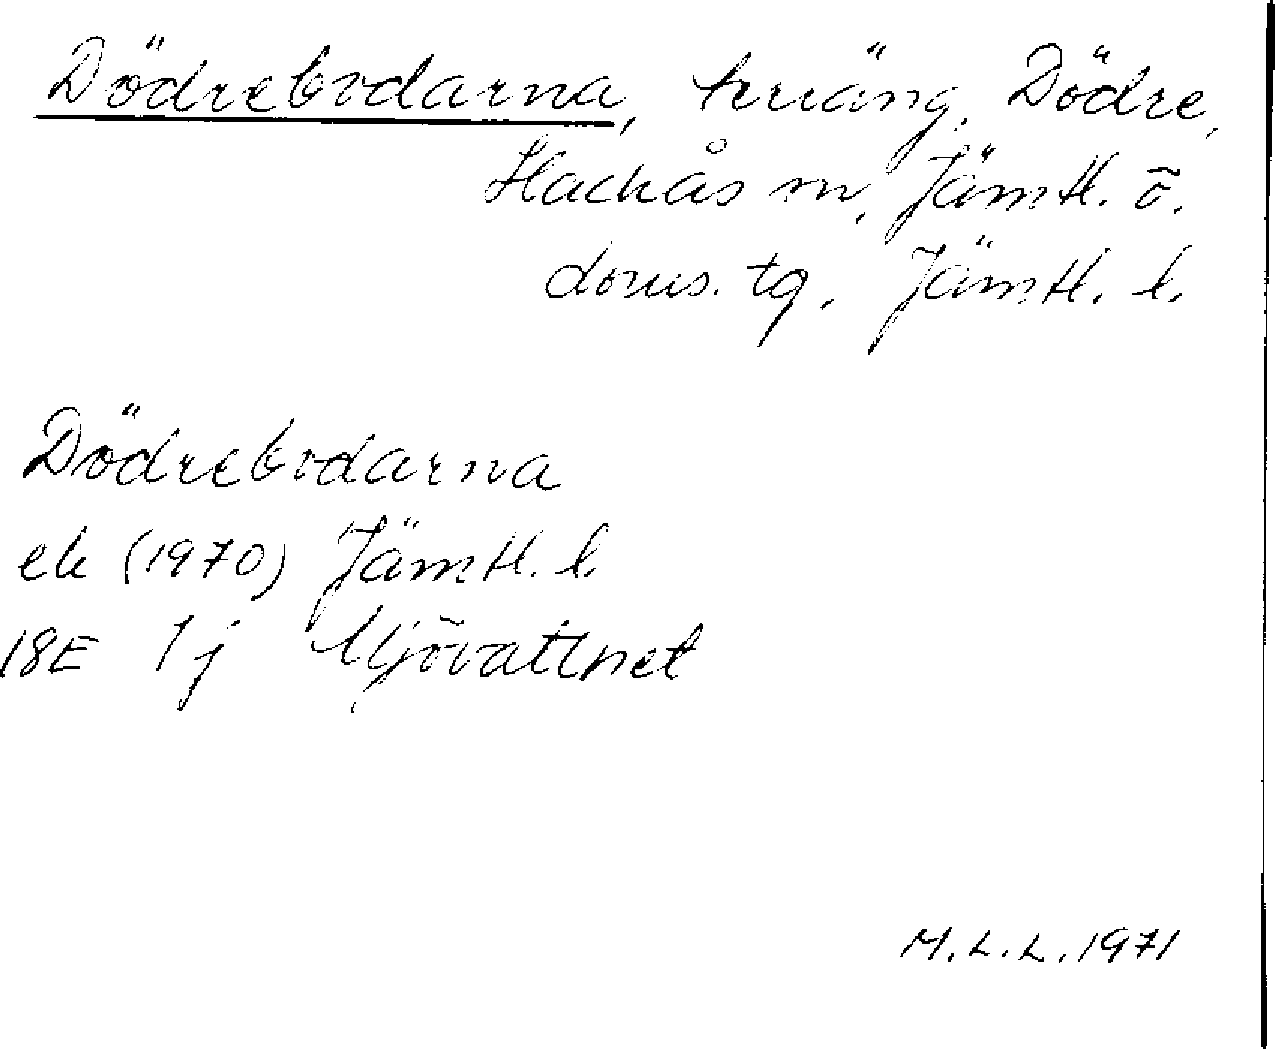 Dödrebodarna, terräng, Dödre,
Hackås sn, Jämtl. ö.
doms. tg, Jämtl. l.
Dödrebodarna
ek (1970) Jämtl. l.
18E 1j Mjövattnet
M.L.L. 1971